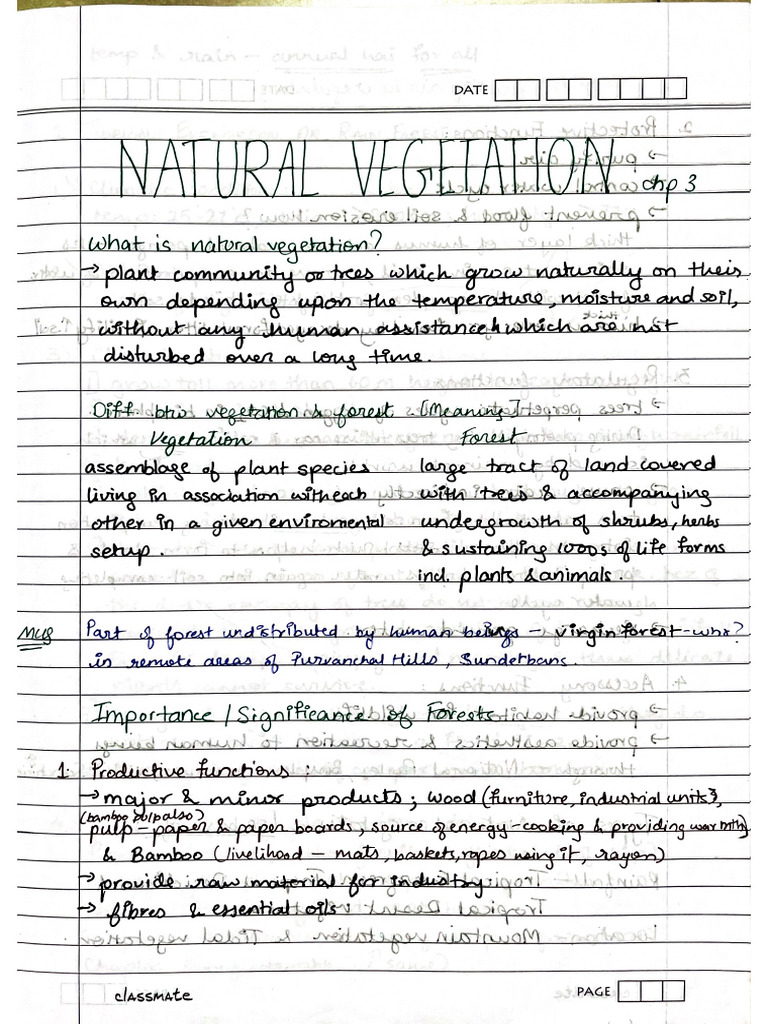 DATE
NATURAL VEGETATION chp 3
What is natural vegetation?
→ plant community or trees which grow naturally on their
own depending upon the temperature, moisture and soil,
without any human assistance & which are not
disturbed over a long time.
Diff btw vegetation & forest [Meaning]
Vegetation
assemblage of plant species
living in association with each
other in a given enviromental
setup.
Forest
large tract of land covered
with trees & accompanying
undergrowth of shrubs, herbs
& sustaining 1000s of life forms
incl. plants & animals.
Part of forest undistributed by human beings - virgin forest -
in remote areas of Purvanchal Hills, Sunderbans.
Importance / Significance of Forests
1. Productive functions:
→ major & minor products; wood (furniture, industrial units),
(bamboo pulp also)
pulp - paper & paper boards, source of energy - cooking & providing warmth
& Bamboo (livelihood - mats, baskets, ropes using it, rayon)
→ provide raw material for industry
→ fibres & essential oils
classmate
PAGE